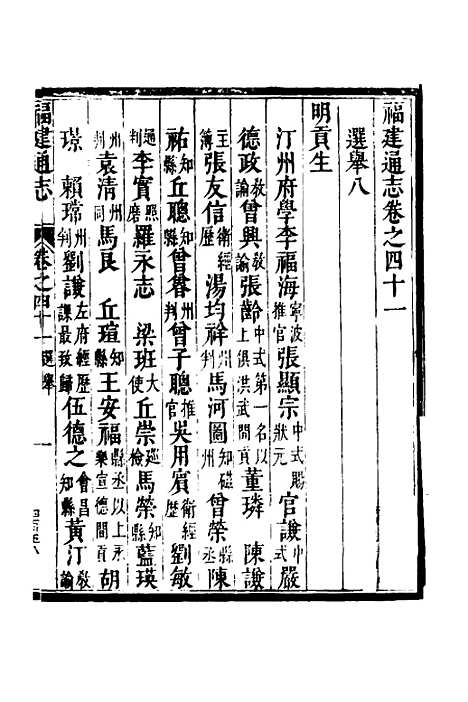 福建通志卷之四十一
選舉八
明貢生
汀州府學李福海寧波推官張顯宗中式賜狀元官謙中式嚴
德政教諭曾興教諭張齡中式第一名以上俱洪武間貢董璘陳謙
主簿張友信衛經歷湯均祥州判馬河圖知磁州曾榮縣丞陳
祐知縣丘聰知縣曾睿州判曾子聰推官吳用賓衛經歷劉敏
通判李實照磨羅永志梁班大使丘崇巡檢馬榮知縣藍瑛
州判袁清州同馬良丘瑄知縣王安福縣丞以上永樂宣德間貢胡
璟賴瑺州判劉謙左府經歷課最致歸伍德之會昌知縣黃汀教諭
福建通志
卷之四十一選舉
一